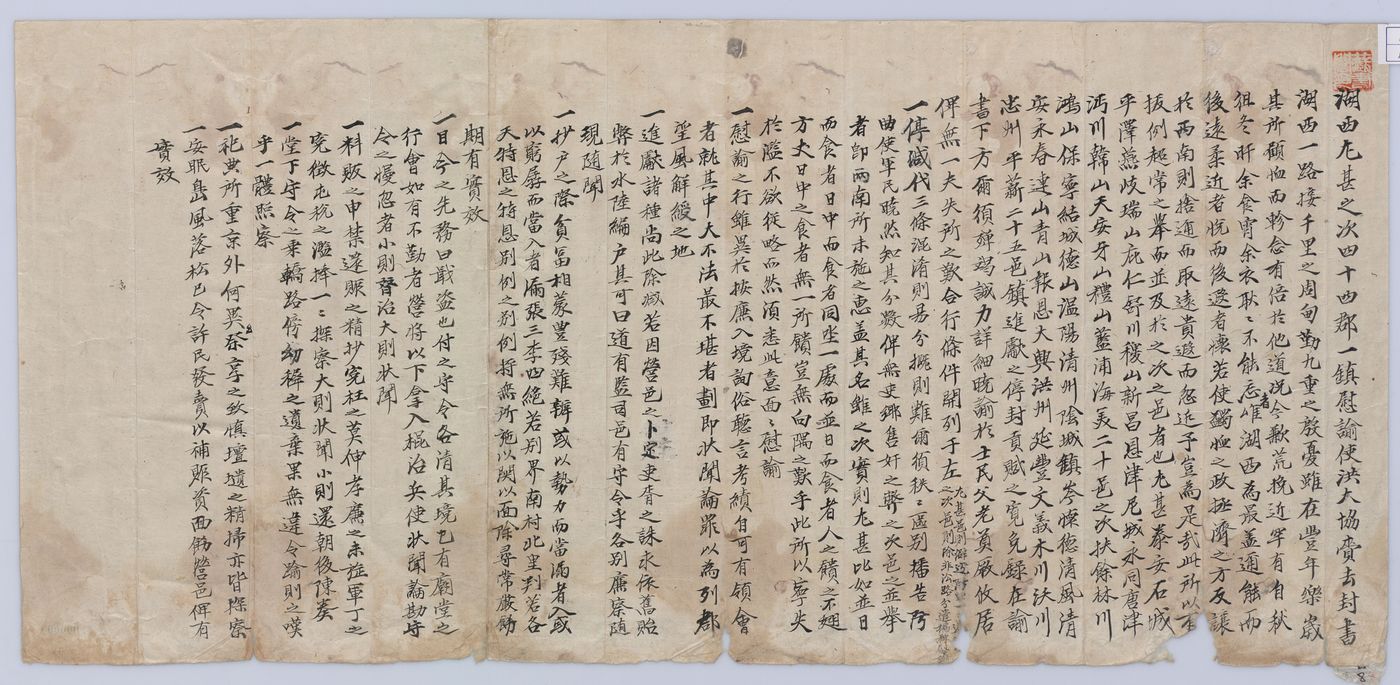 湖西尤甚之次四十四郡一鎮慰諭使洪大協賫去封書
湖西一路接千里之周甸勤九重之殷憂雖在豊年樂歲
其所顧恤而軫念有倍於他道况今歉荒挽近罕有自秋
徂冬旰余食宵余衣耿耿不能忘者唯湖西為最盖邇能而
後遠柔近者悅而後遠者懷若使獨恤之政拯濟之方反讓
於兩南則捨邇而取遠貴遐而忽近予豈為是哉此所以
拔例超常之舉而並及於之次之邑者也尤甚泰安石城
平澤燕歧瑞山庇仁舒川稷山新昌恩津尼城永同唐津
沔川韓山天安牙山禮山藍浦海美二十邑之次扶餘林川
鴻山保寧結城德山溫陽清州陰城鎮岑懷德清風清
安永春連山青山報恩大興洪州延豐文義木川沃川
忠州平薪二十五邑鎮進獻之停封貢賦之寬免錄在諭
書下方爾須殫竭誠力詳細曉諭於士民父老真厥攸居
俾無一夫失所之歎合行條件開列于左
一停減代三條混淆則易分擬則難爾須秩秩區別播告
曲使軍民曉然知其分數俾無吏鄉售奸之弊之次邑之並舉
者卽兩南所未施之惠盖其名雖之次實則尤甚比如並日
而食者日中而食者同坐一處而並日而食者人之饋之不翅
方丈日中之食者無一所饋豈無向隅之歎乎此所以寧失
於濫不欲從略而然須悉此意面面慰諭
一慰諭之行雖異於按廉入境詢俗聽言考績自可有領會
者就其中大不法最不堪者劃卽狀聞論罪以為列郡
望風解綬之地
一進獻諸種尚此除減若因營邑之卜定吏胥之誅求依舊貽
弊於水陸編戶其可曰道有監司邑有守令乎各別廉察隨
現隨聞
一抄戶之際貧富相蒙豐殘難辨或以勢力而當漏者入或
以窮孱而當入者漏張三李四絕若別界南村北里判若各
天特恩之特恩別例之別例將無所施以關以面除尋常嚴飭
期有實效
一目今之先務曰戢盜也付之守令各清其境已有廟堂之
行會如有不勤者營將以下拿入棍治兵使狀聞論勘守
令之慢忽者小則督治大則狀聞
一料販之申禁遂賑之精抄寃枉之莫伸孝廉之未旌軍丁之
寃徵屯稅之濫捧一一採察大則狀聞小則還朝後陳奏
一堂下守令之乘轎路傍幼穉之遺棄果無違令踰則之嘆
乎一體照察
一祀典所重京外何異祭享之致愼壇壝之精掃亦皆採察
一安眠島風落松已令許民發賣以補賑資面飭營邑俾有
實效